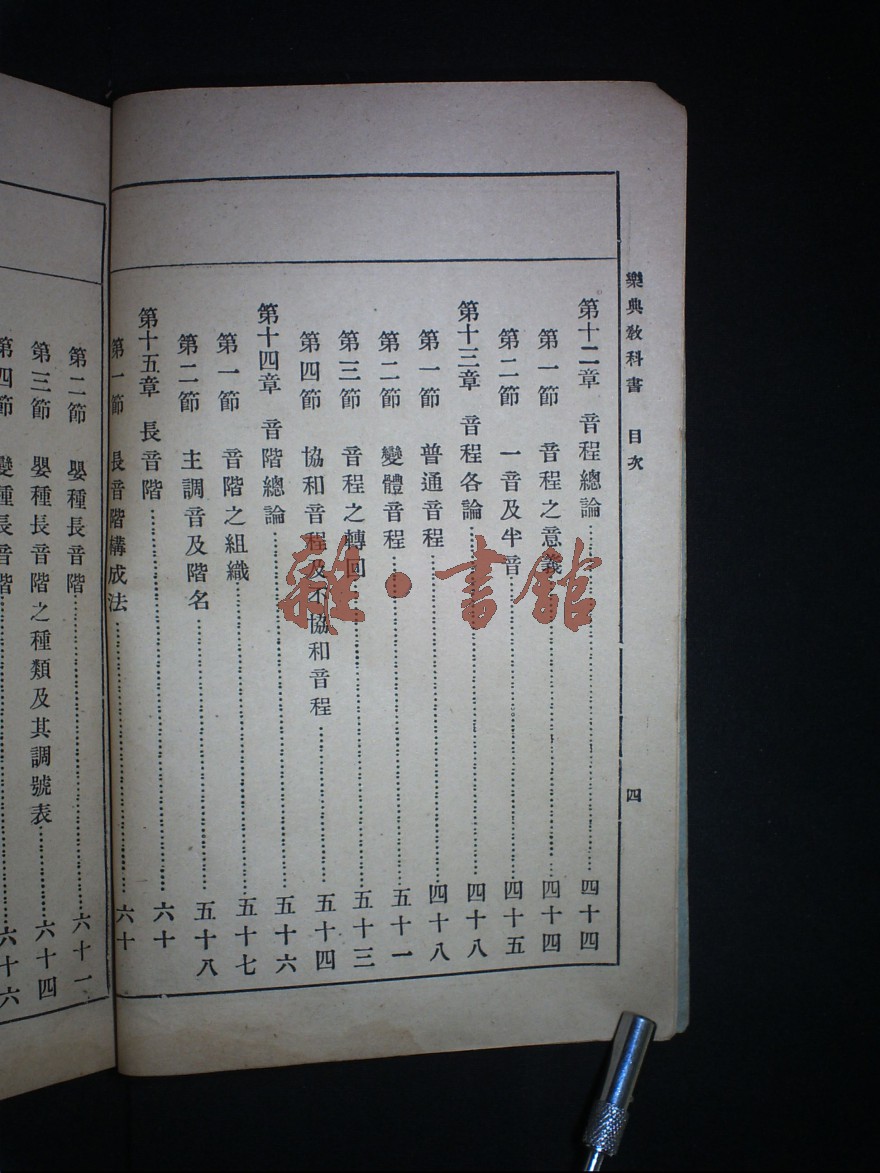 樂典教科書 目次 四
第十二章 音程總論……四十四
第一節 音程之意義……四十四
第二節 一音及半音……四十五
第十三章 音程各論……四十八
第一節 普通音程……四十八
第二節 變體音程……五十一
第三節 音程之轉回……五十三
第四節 協和音程及不協和音程……五十四
第十四章 音階總論……五十六
第一節 音階之組織……五十七
第二節 主調音及階名……五十八
第十五章 長音階……六十
第一節 長音階構成法……六十
第二節 嬰種長音階……六十一
第三節 嬰種長音階之種類及其調號表……六十四
第四節 變種長音階……六十六
雜·書館